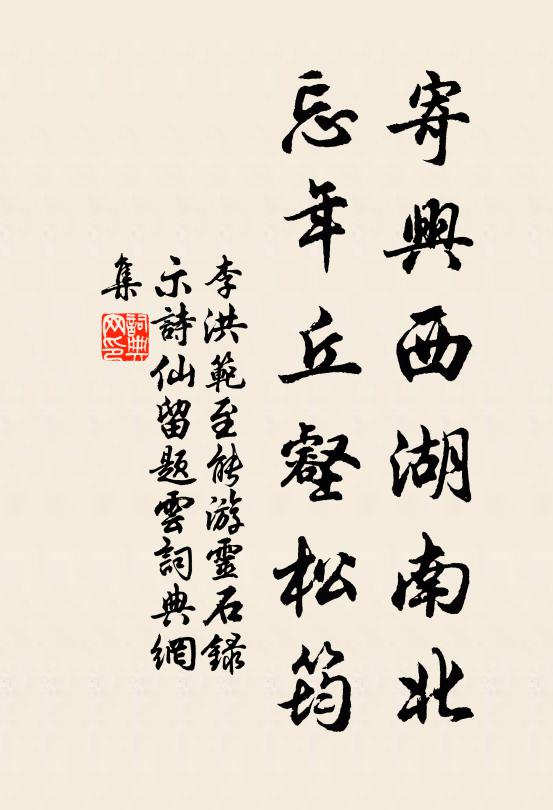 寄興西湖南北
忘年丘壑松筠
李洪範至能游靈石錄
示詩仙留題雲詞典網
集
詞典網印